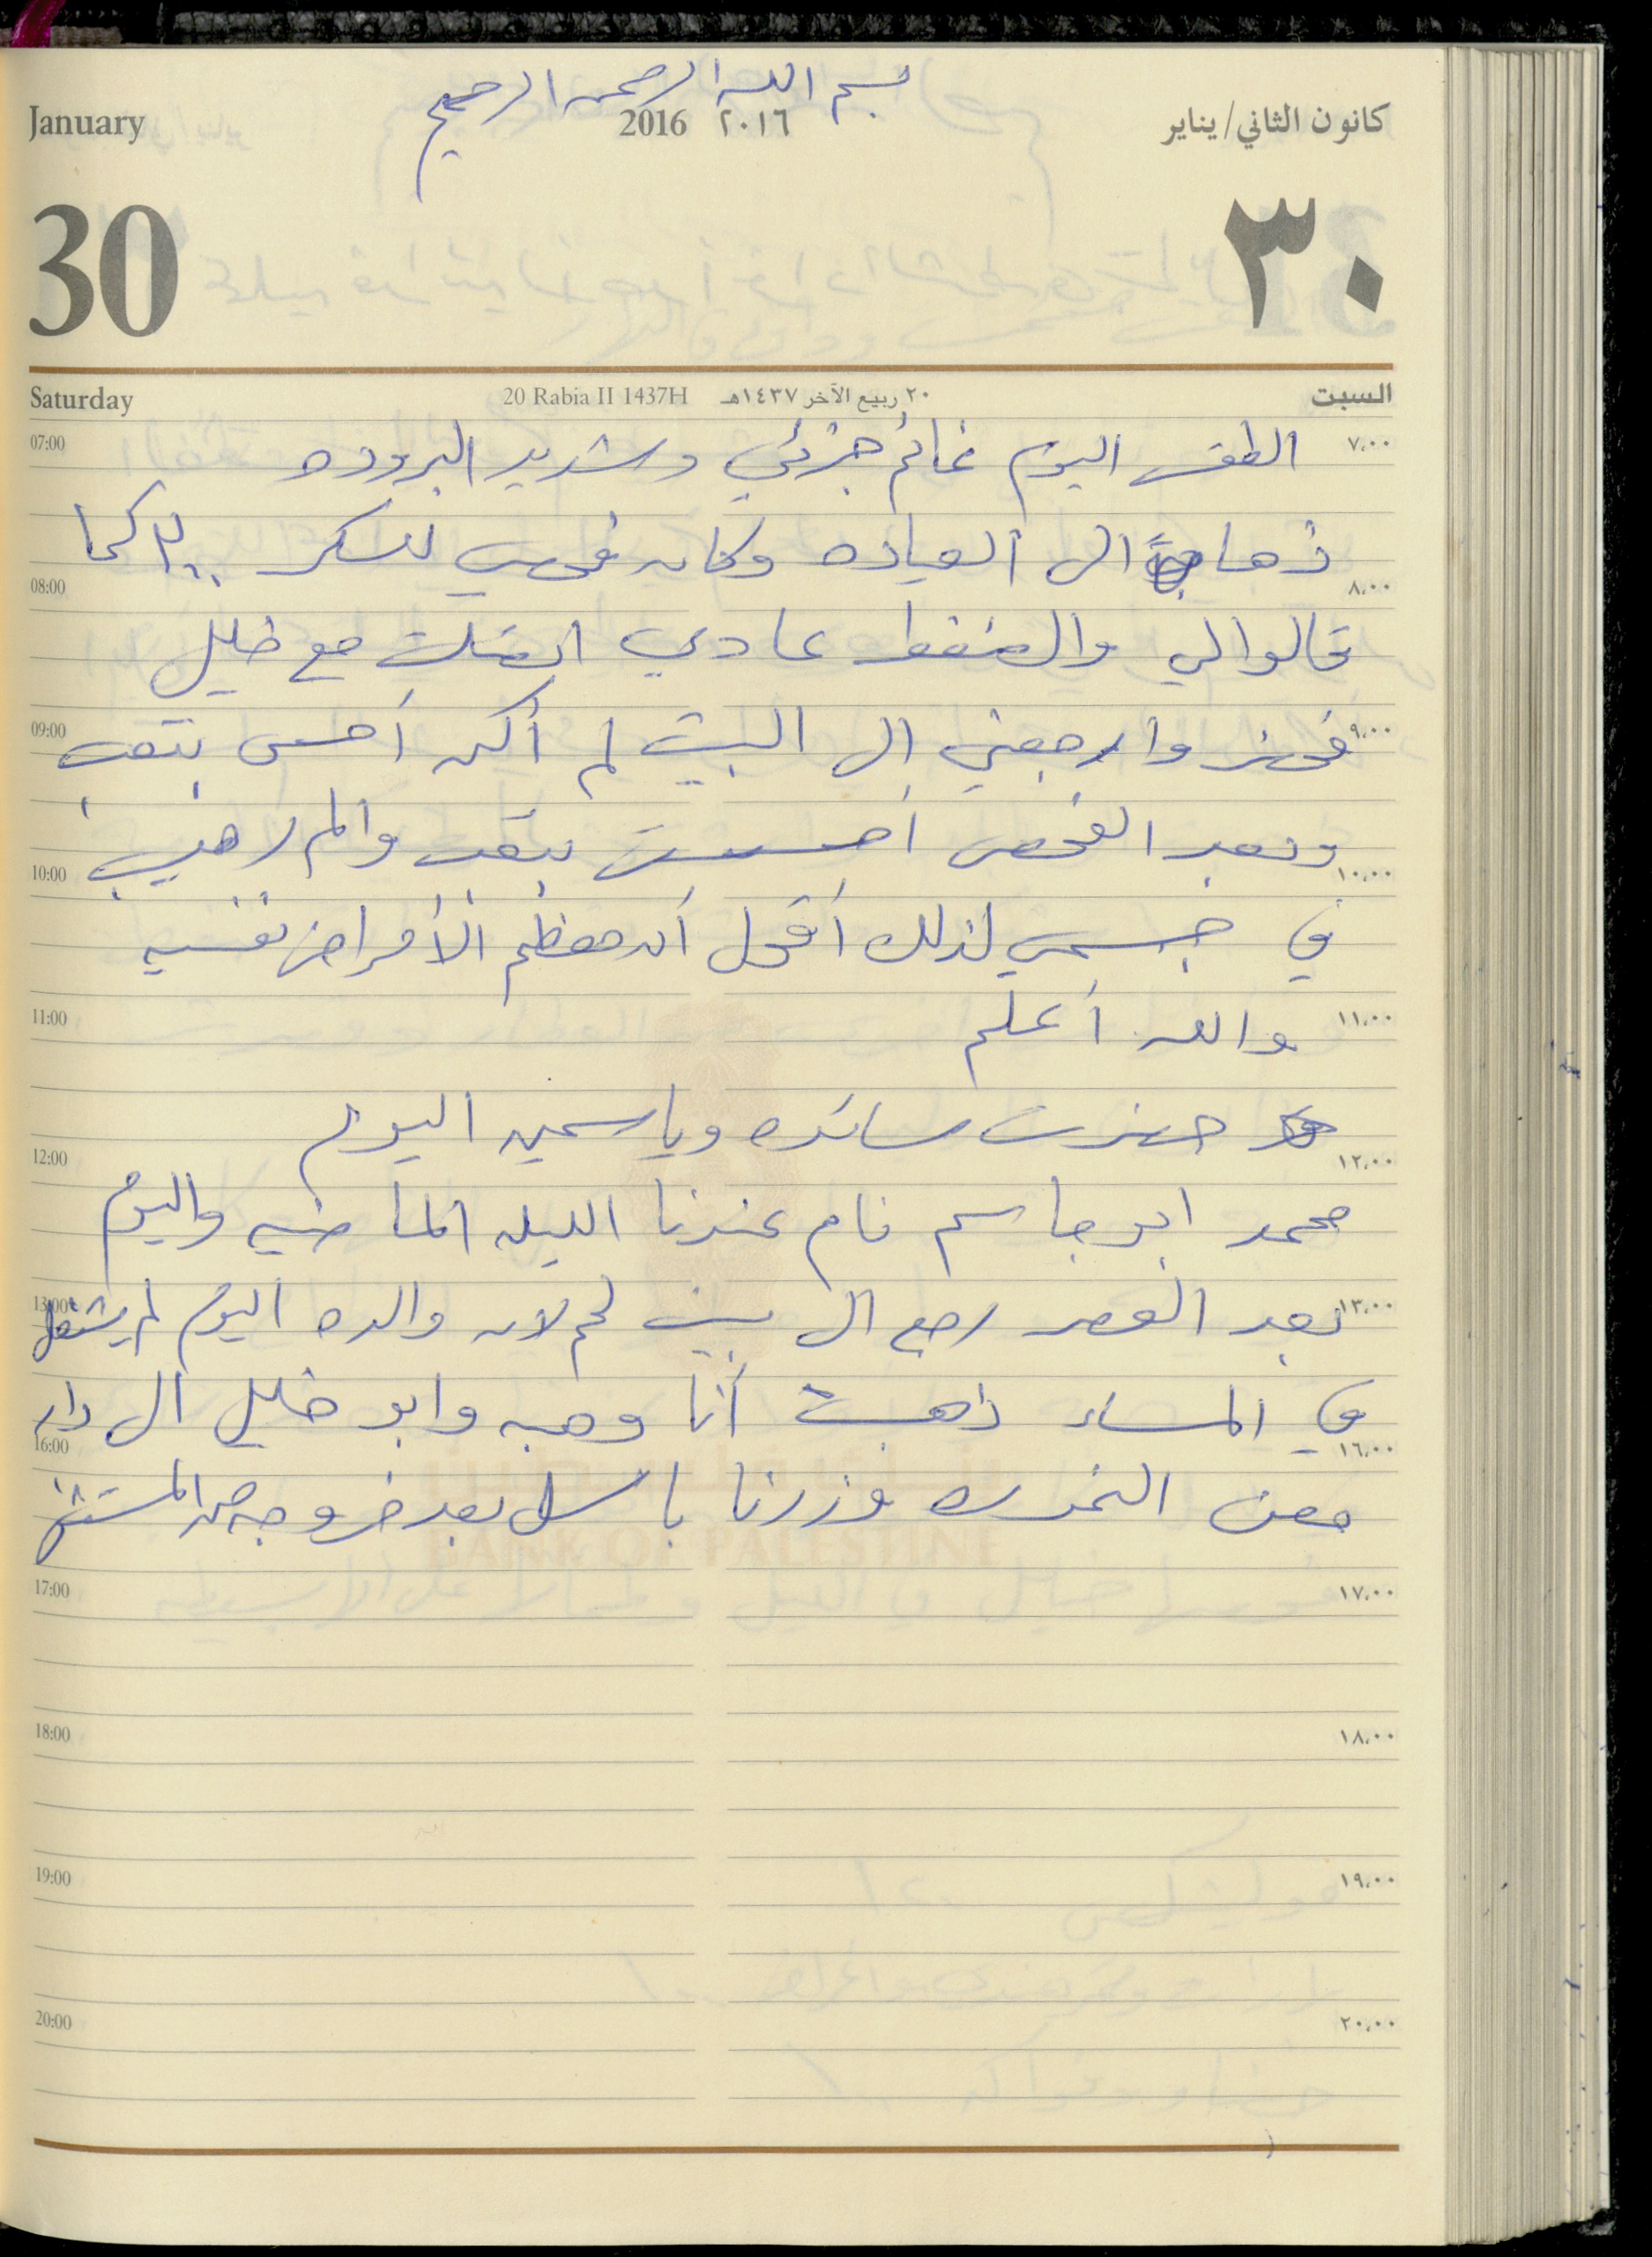 بسم الله الرحمن الرحيم
January 2016 ٢٠١٦ كانون الثاني/يناير
30 ٣٠
Saturday 20 Rabia II 1437H ٢٠ ربيع الآخر ١٤٣٧هـ السبت
07:00 الطقس اليوم غائم جزئي وشديد البروده ٧،٠٠
ذهابا الى العياده وكان فحص للسكر كما
08:00 ٨،٠٠
قالوا لي والضغط عادي اتصلت مع خليل
09:00 فحضر وارجعني الى البيت لم أكن أحس بتعب ٩،٠٠
وبعد الفحص أحسست بتعب والم رهيب
10:00 ١٠،٠٠
في جسمي لذلك أقول أن معظم الأمراض نفسيه
11:00 والله أعلم ١١،٠٠
حضرت سائده وياسمين اليوم
12:00 ١٢،٠٠
محمد ابو جاسم نام عندنا الليله الماضيه واليوم
13:00 بعد العصر رجع الى بيت لحم لان والده اليوم لم يشتغل ١٣،٠٠
في المساء ذهبت أنا وهبه وابو خليل الى دار
16:00 ١٦،٠٠
معن وزرنا باسل بعد خروجه من المستشفى
BANK OF PALESTINE
17:00 ١٧،٠٠
18:00 ١٨،٠٠
19:00 ١٩،٠٠
20:00 ٢٠،٠٠